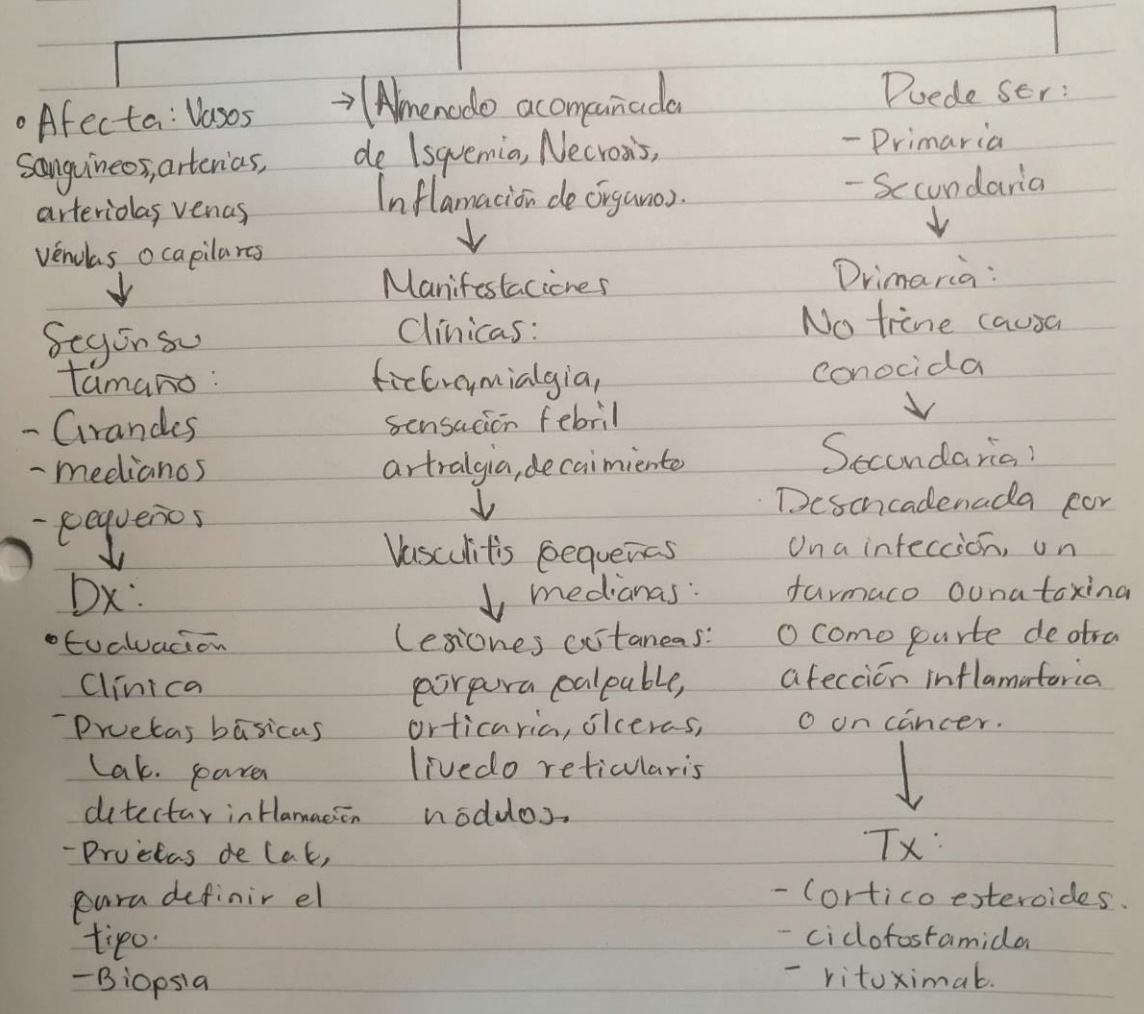 • Afecta: Vasos
sanguíneos, arterias,
arteriolas, venas,
vénulas o capilares
↓
Según su
tamaño:
- Grandes
- medianos
- pequeños
↓
Dx:
• Evaluación
Clínica
- Pruebas básicas
Lab. para
detectar inflamación
- Pruebas de Lab,
para definir el
tipo.
- Biopsia
→ (Almenudo acompañada
de Isquemia, Necrosis,
Inflamación de órganos.
↓
Manifestaciones
Clínicas:
fiebre, mialgia,
sensación febril
artralgia, decaimiento
↓
Vasculitis pequeñas
↓ medianas:
Lesiones cutaneas:
púrpura palpable,
urticaria, úlceras,
livedo reticularis
nódulos.
Puede ser:
- Primaria
- Secundaria
↓
Primaria:
No tiene causa
conocida
↓
Secundaria:
Desencadenada por
una infección, un
farmaco o una toxina
o como parte de otra
afección inflamatoria
o un cáncer.
↓
Tx:
- Cortico esteroides.
- ciclofosfamida
- rituximab.